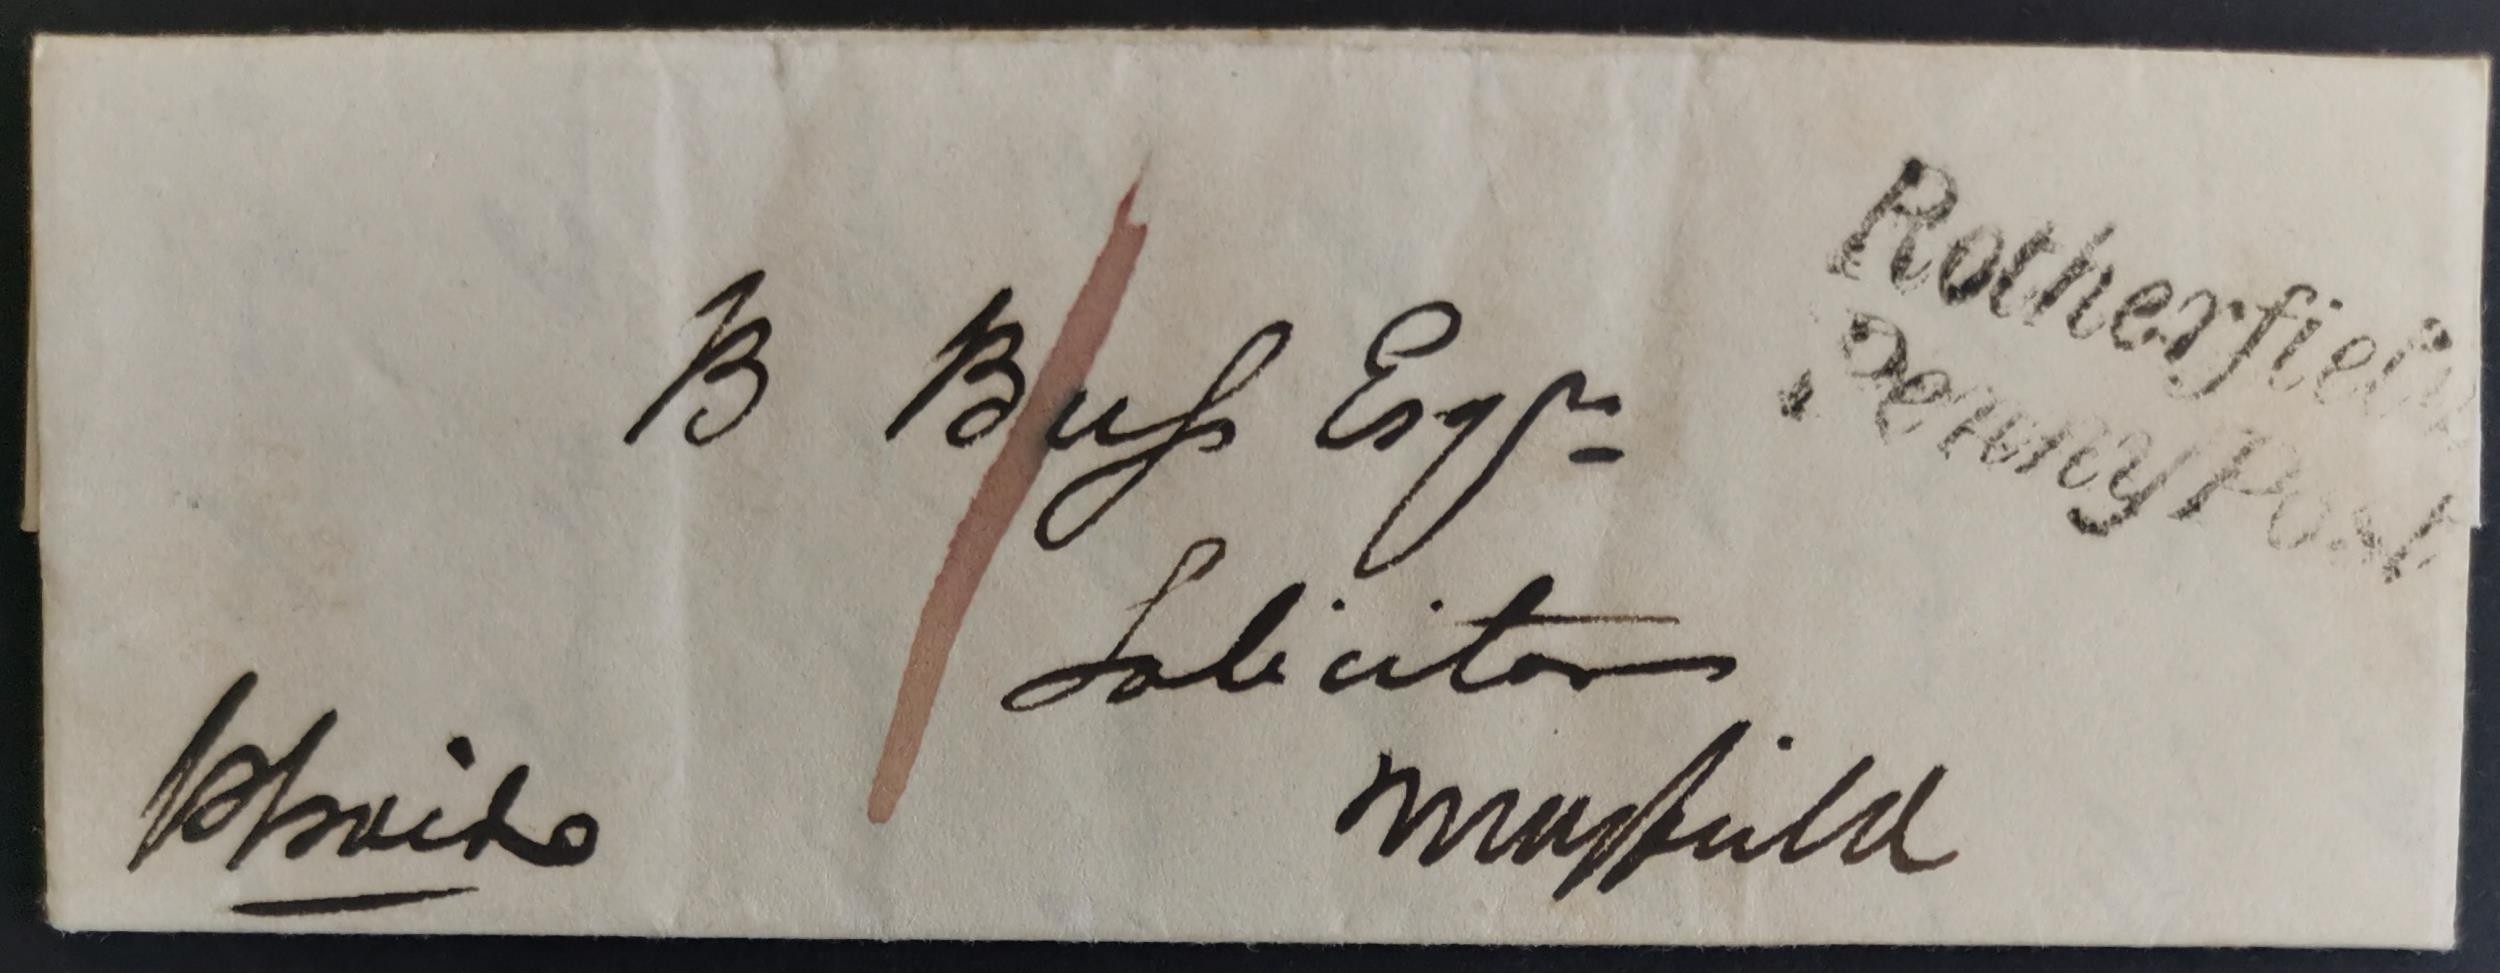 Rotherfield
Penny Post
B Buſs Esqr
Solicitor
Mayfield
Paid